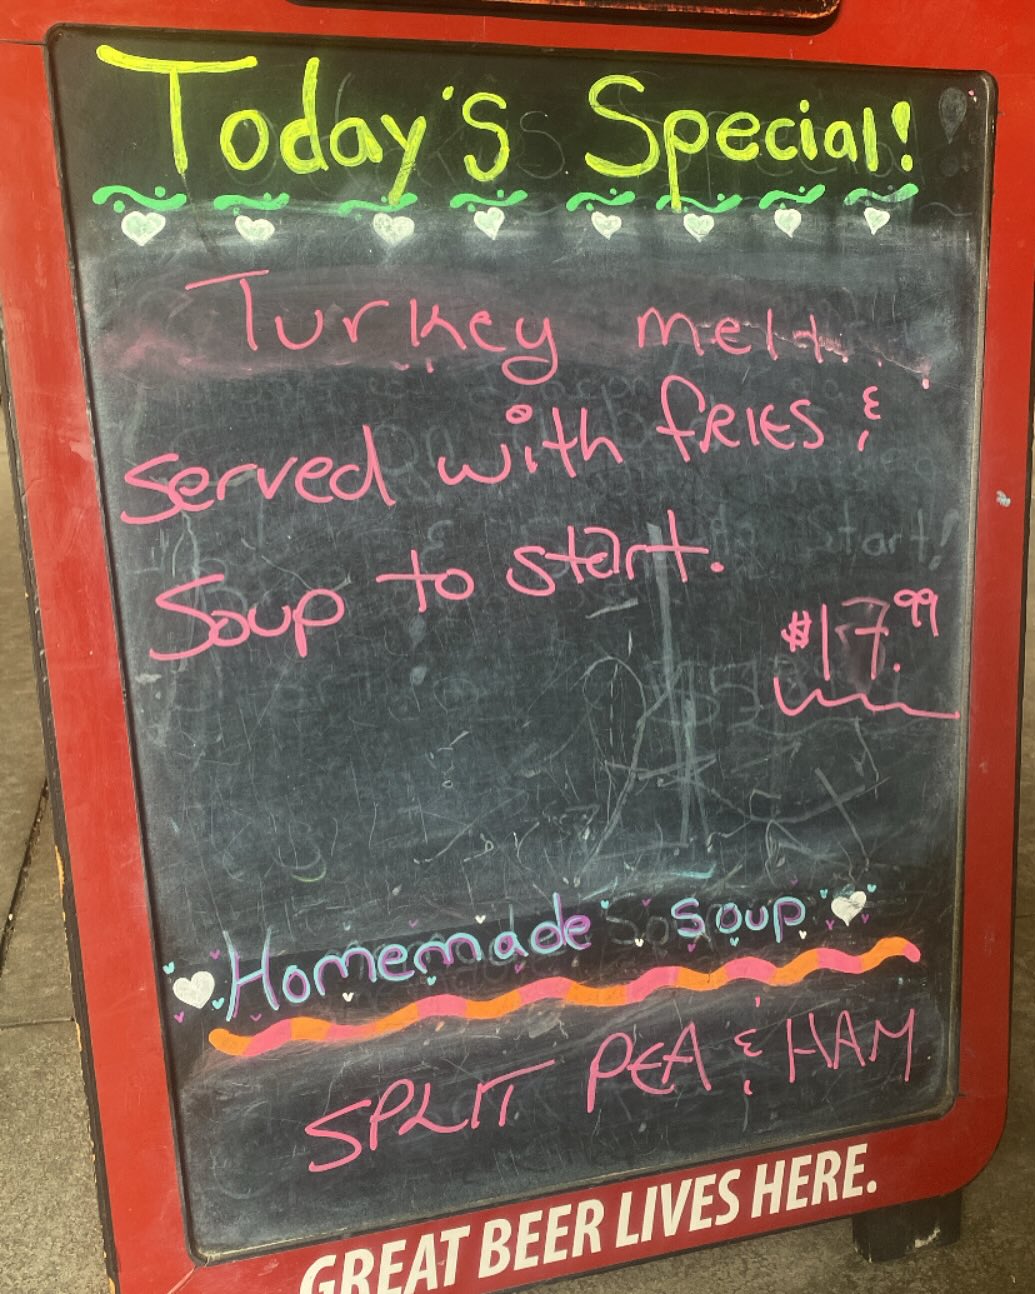 Today's Special!
Turkey melt
served with fRIES &
Soup to start.
$17.99
Homemade soup
SPLIT PEA & HAM
GREAT BEER LIVES HERE.